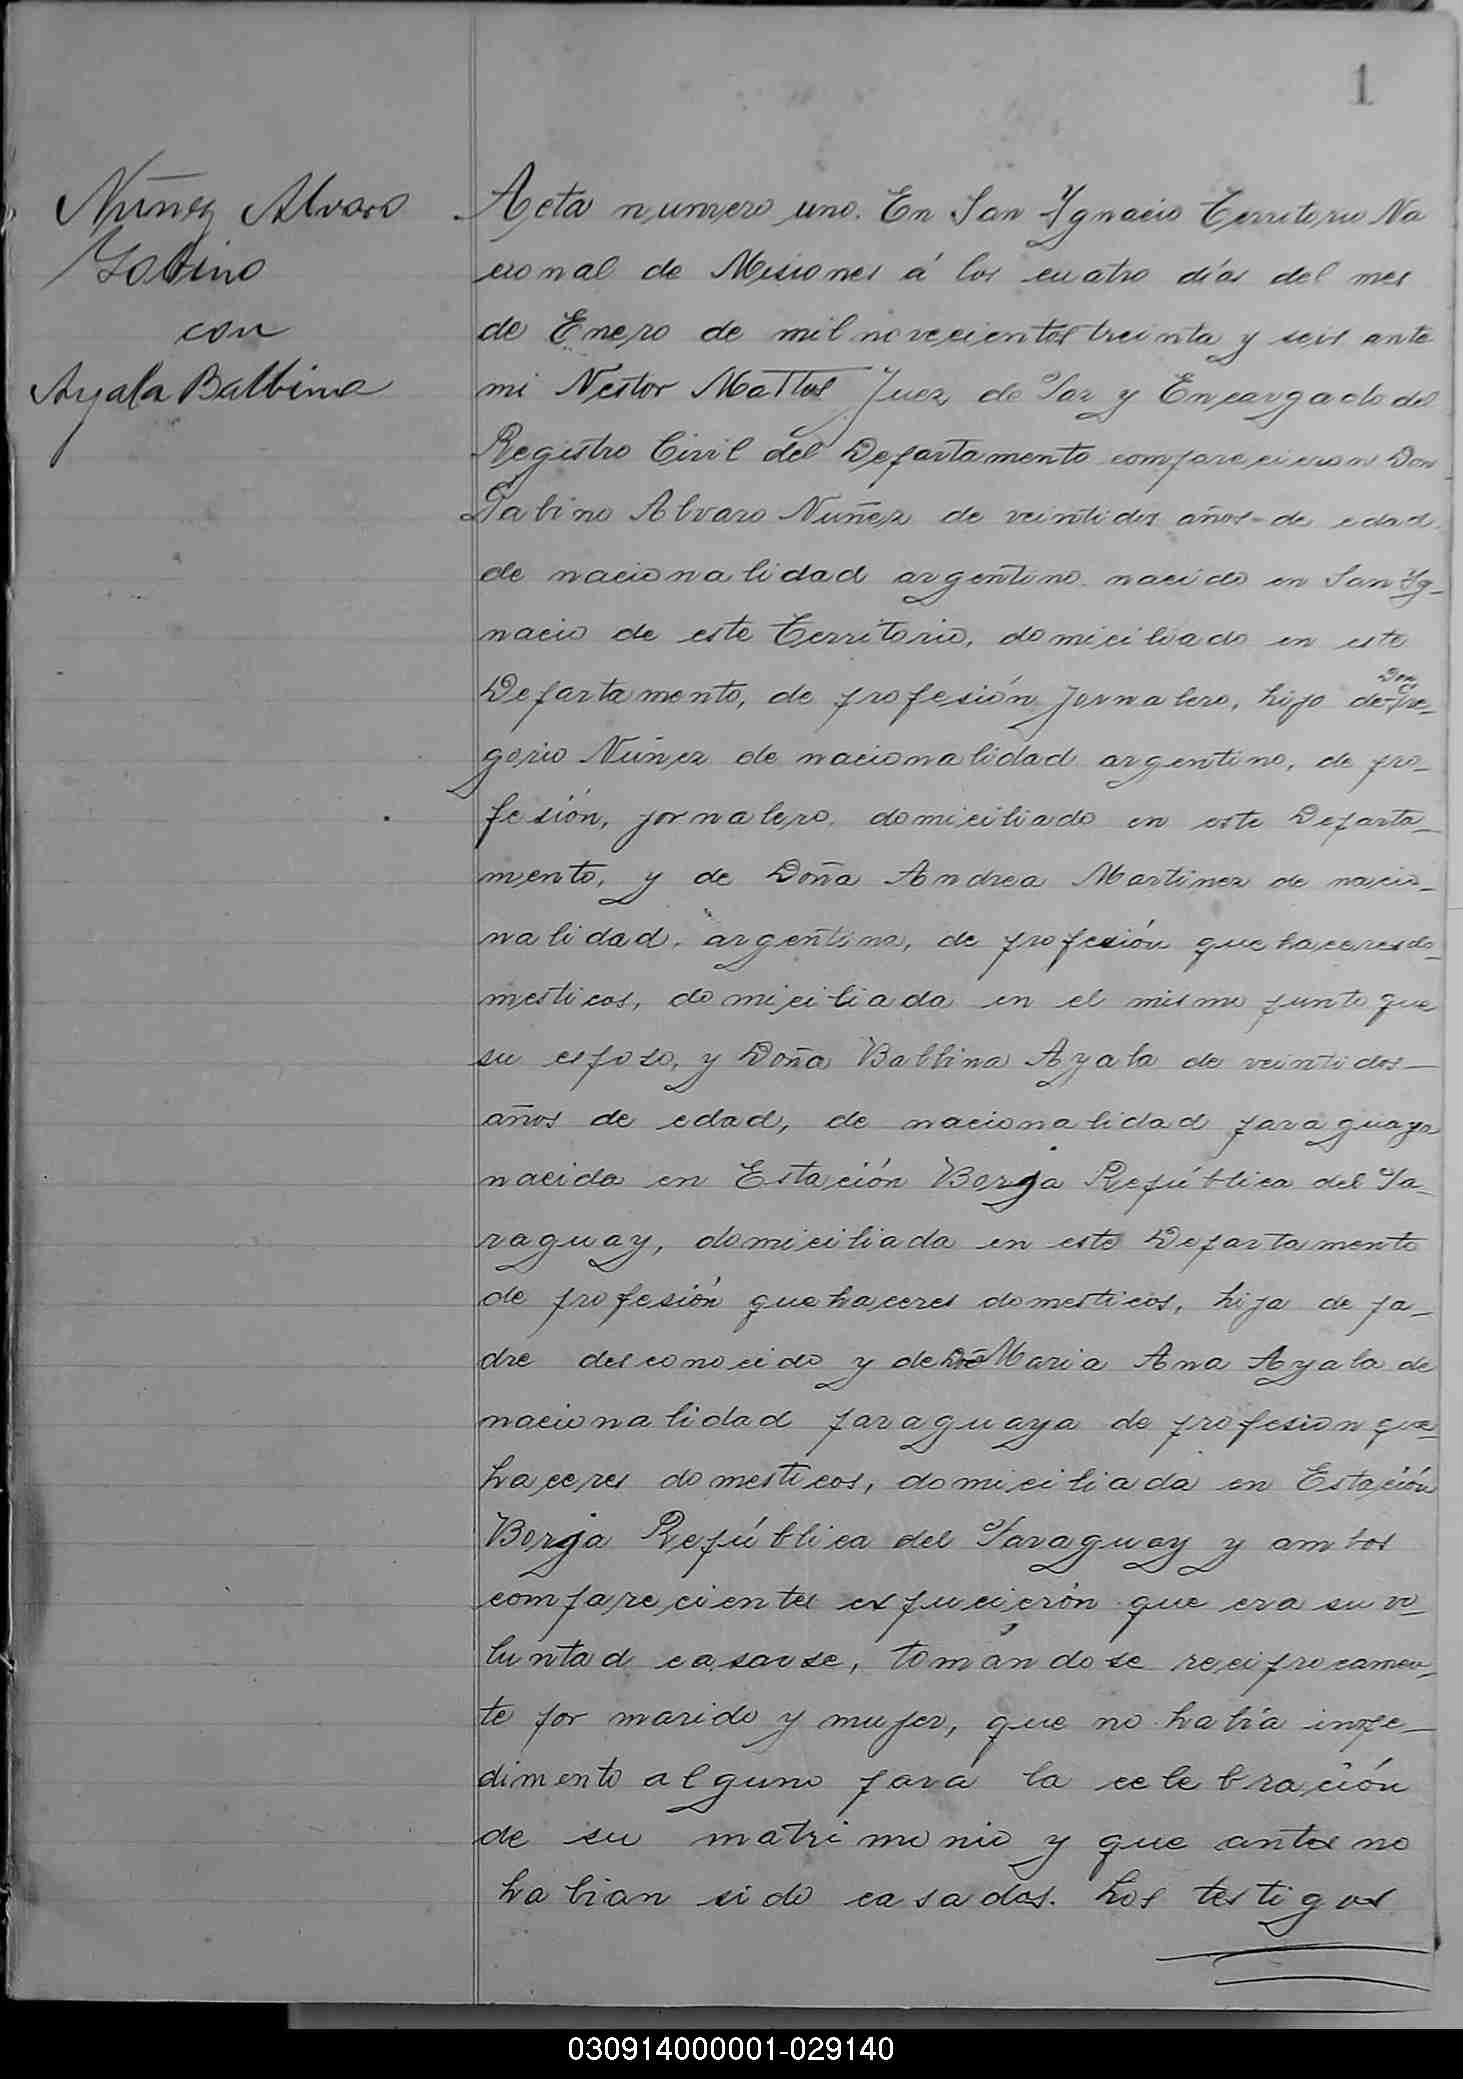 1
Nuñez Alvaro
Gabino
con
Ayala Balbina
Acta numero uno. En San Ygnacio Territorio Na
cional de Misiones á los cuatro días del mes
de Enero de mil novecientos treinta y seis ante
mi Nestor Mattos Juez de Paz y Encargado del
Registro Civil del Departamento comparecieron Don
Gabino Alvaro Nuñez de veintidos años de edad
de nacionalidad argentino nacido en San Yg-
nacio de este Territorio, domiciliado en este
Departamento, de profesión Jornalero, hijo de Don Gre-
gorio Núnez de nacionalidad argentino, de pro-
fesión, jornalero domiciliado en este Departa-
mento, y de Doña Andrea Martinez de nacio-
nalidad argentina, de profesión quehaceres do-
mesticos, domiciliada en el mismo punto que
su esposo, y Doña Balbina Ayala de veintidos
años de edad, de nacionalidad paraguaya
nacida en Estación Borja República del Pa-
raguay, domiciliada en este Departamento
de profesión quehaceres domesticos, hija de pa-
dre desconocido y de Dña Maria Ana Ayala de
nacionalidad paraguaya de profesion que-
haceres domesticos, domiciliada en Estación
Borja República del Paraguay y ambos
comparecientes expucierón que era su vo-
luntad casarse, tomándose reciprocamen-
te por marido y mujer, que no había inpe-
dimento alguno para la celebración
de su matrimonio y que antes no
habian sido casados. Los testigos
030914000001-029140